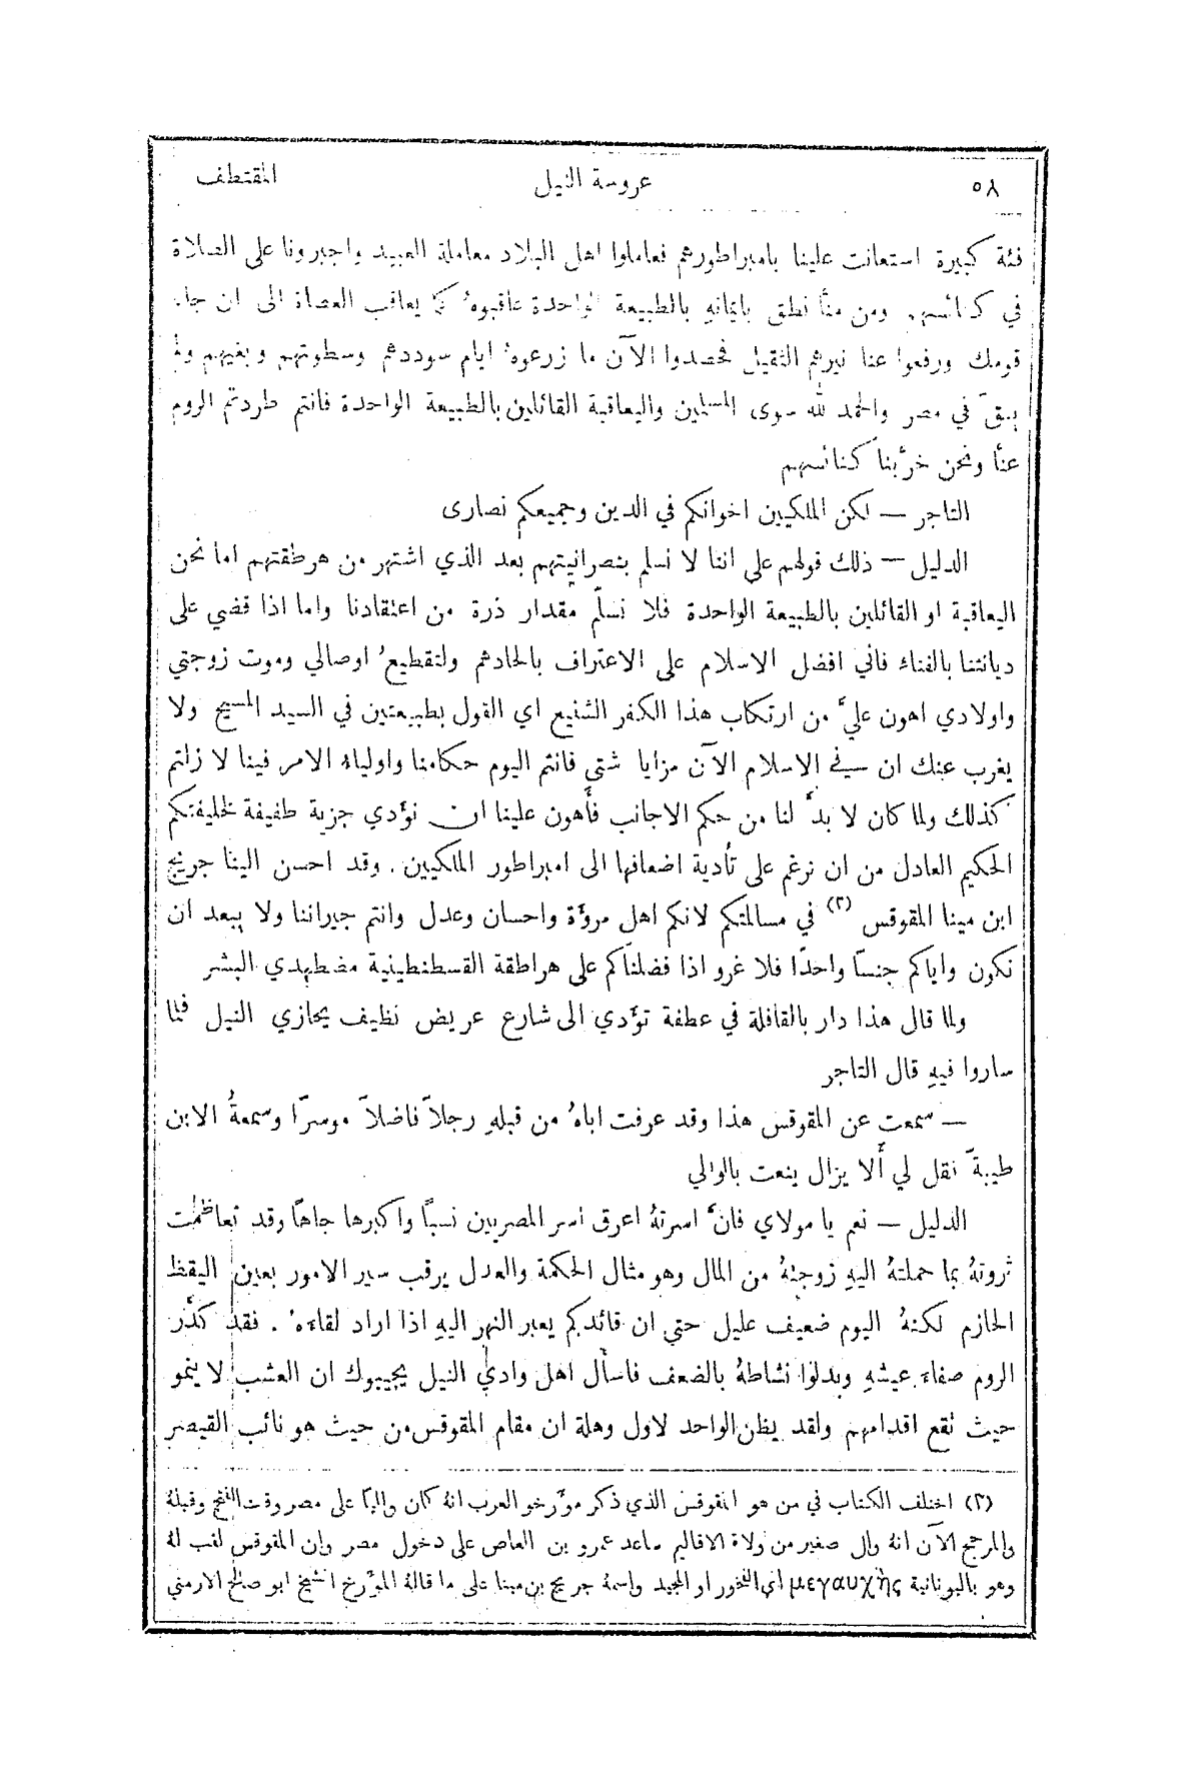 ٥٨ عروسة النيل المقتطف
فئة كبيرة استعانت علينا بامبراطورهم فعاملوا اهل البلاد معاملة العبيد واجبرونا على الصلاة
في كنائسهم ومن منّا نطق بايمانهِ بالطبيعة الواحدة عاقبوهُ كما يعاقب العصاة الى ان جاء
قومك ورفعوا عنا نيرهم الثقيل فحصدوا الآن ما زرعوهُ ايام سوددهم وسطوتهم وبغيهم ولم
يبقَ في مصر والحمد لله سوى المسلمين واليعاقبة القائلين بالطبيعة الواحدة فانتم طردتم الروم
عنا ونحن خرّبنا كنائسهم
التاجر — لكن الملكيين اخوانكم في الدين وجميعكم نصارى
الدليل — ذلك قولهم على اننا لا نسلم بنصرانيتهم بعد الذي اشتهر من هرطقتهم اما نحن
اليعاقبة او القائلين بالطبيعة الواحدة فلا نسلّم مقدار ذرة من اعتقادنا واما اذا قضي على
ديانتنا بالفناء فاني افضل الاسلام على الاعتراف بالحادهم ولتقطيعُ اوصالي وموت زوجتي
واولادي اهون عليَّ من ارتكاب هذا الكفر الشنيع اي القول بطبيعتين في السيد المسيح ولا
يغرب عنك ان في الاسلام الآن مزايا شتى فانتم اليوم حكامنا واولياء الامر فينا لا زلتم
كذلك ولما كان لا بدَّ لنا من حكم الاجانب فأهون علينا ان نؤدي جزية طفيفة لخليفتكم
الحكيم العادل من ان نرغم على تأدية اضعافها الى امبراطور الملكيين . وقد احسن الينا جريج
ابن مينا المقوقس (٢) في مسالمتكم لانكم اهل مروّة واحسان وعدل وانتم جيراننا ولا يبعد ان
نكون واياكم جنسًا واحدًا فلا غرو اذا فضلناكم على هراطقة القسطنطينية مضطهدي البشر
ولما قال هذا دار بالقافلة في عطفة تؤدي الى شارع عريض نظيف يحازي النيل فلما
ساروا فيهِ قال التاجر
— سمعت عن المقوقس هذا وقد عرفت اباهُ من قبلهِ رجلاً فاضلاً موسرًا وسمعةُ الابن
طيبة نقل لي ألا يزال ينعت بالوالي
الدليل — نعم يا مولاي فانَّ اسرتهُ اعرق اسر المصريين نسبًا واكبرها جاهًا وقد تعاظمت
ثروتهُ بما حملتهُ اليهِ زوجتهُ من المال وهو مثال الحكمة والعدل يرقب سير الامور بعين اليقظ
الحازم لكنهُ اليوم ضعيف عليل حتى ان قائدكم يعبر النهر اليهِ اذا اراد لقاءهُ . فقد كدّر
الروم صفاء عيشهِ وبدلوا نشاطهُ بالضعف فاسأل اهل وادي النيل يجيبوك ان العشب لا ينمو
حيث تقع اقدامهم ولقد يظن الواحد لاول وهلة ان مقام المقوقس من حيث هو نائب القيصر
(٢) اختلف الكتاب في من هو المقوقس الذي ذكر مؤرخو العرب انهُ كان واليًا على مصر وقت الفتح وقبلهُ
والمرجح الآن انهُ وال صغير من ولاة الاقاليم ساعد عمرو بن العاص على دخول مصر وان المقوقس لقب لهُ
وهو باليونانية μεγαυχὴς اي الفخور او المجيد واسمهُ جريج بن مينا على ما قالهُ المؤرخ الشيخ ابو صالح الارمني